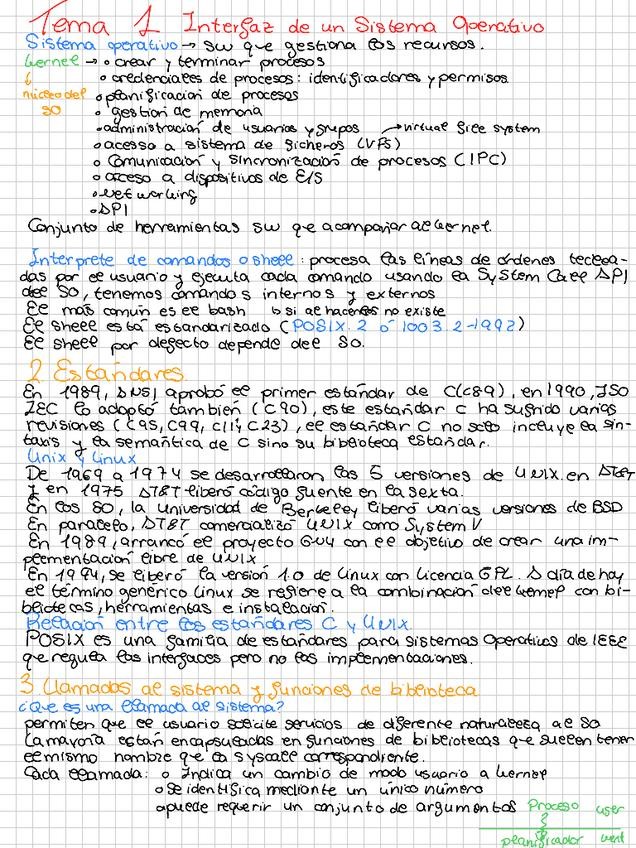 Tema 1 Interfaz de un Sistema Operativo
Sistema operativo → SW que gestiona los recursos.
kernel → • crear y terminar procesos
↓ • credenciales de procesos: identificadores y permisos
núcleo del • planificación de procesos
SO • gestión de memoria
• administración de usuarios y grupos → virtual file system
• acceso a sistema de ficheros (VFS)
• Comunicación y sincronización de procesos (IPC)
• acceso a dispositivos de E/S
• networking
• API
Conjunto de herramientas SW que acompañan al kernel.
Interprete de comandos o shell: procesa las líneas de órdenes teclea-
das por el usuario y ejecuta cada comando usando la System Call API
del SO, tenemos comandos internos y externos
El más común es el bash si al hacer no existe
El shell está estandarizado (POSIX.2 ó 1003.2-1992)
El shell por defecto depende del SO.
2 Estándares
En 1989, ANSI aprobó el primer estándar de C (C89), en 1990, ISO
IEC lo adoptó también (C90), este estándar C ha sufrido varias
revisiones (C95, C99, C11 y C23), el estándar C no solo incluye la sin-
taxis y la semántica de C sino su biblioteca estándar.
Unix y Linux
De 1969 a 1974 se desarrollaron las 5 versiones de UNIX en AT&T
y en 1975 AT&T liberó código fuente en la sexta.
En los 80, la universidad de Berkeley liberó varias versiones de BSD
En paralelo, AT&T comercializó UNIX como System V
En 1989, arrancó el proyecto GNU con el objetivo de crear una im-
plementación libre de UNIX
En 1994, se liberó la versión 1.0 de Linux con licencia GPL. A día de hoy
el término genérico Linux se refiere a la combinación del kernel con bi-
bliotecas, herramientas e instalación.
Relación entre los estándares C y UNIX.
POSIX es una familia de estándares para sistemas Operativos de IEEE
que regula las interfaces pero no las implementaciones.
3 Llamadas al sistema y funciones de biblioteca
¿Que es una llamada al sistema?
permiten que el usuario solicite servicios de diferente naturaleza al SO
La mayoría están encapsuladas en funciones de bibliotecas que suelen tener
el mismo nombre que la syscall correspondiente.
Cada llamada: o Indica un cambio de modo usuario a kernel
o Se identifica mediante un único número
o puede requerir un conjunto de argumentos Proceso user
planificador kernel